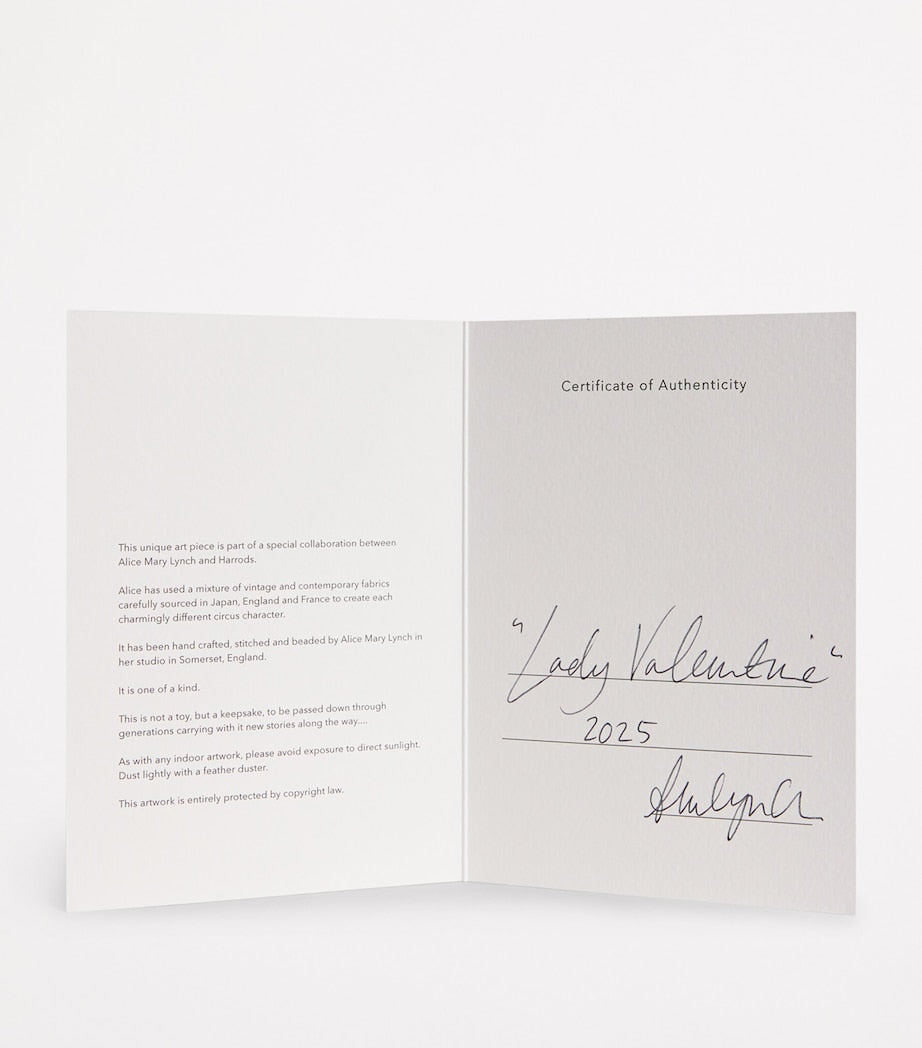 This unique art piece is part of a special collaboration between
Alice Mary Lynch and Harrods.
Alice has used a mixture of vintage and contemporary fabrics
carefully sourced in Japan, England and France to create each
charmingly different circus character.
It has been hand crafted, stitched and beaded by Alice Mary Lynch in
her studio in Somerset, England.
It is one of a kind.
This is not a toy, but a keepsake, to be passed down through
generations carrying with it new stories along the way....
As with any indoor artwork, please avoid exposure to direct sunlight.
Dust lightly with a feather duster.
This artwork is entirely protected by copyright law.
Certificate of Authenticity
"Lady Valentine"
2025